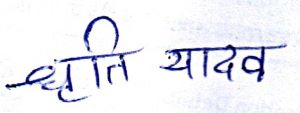 धृति यादव